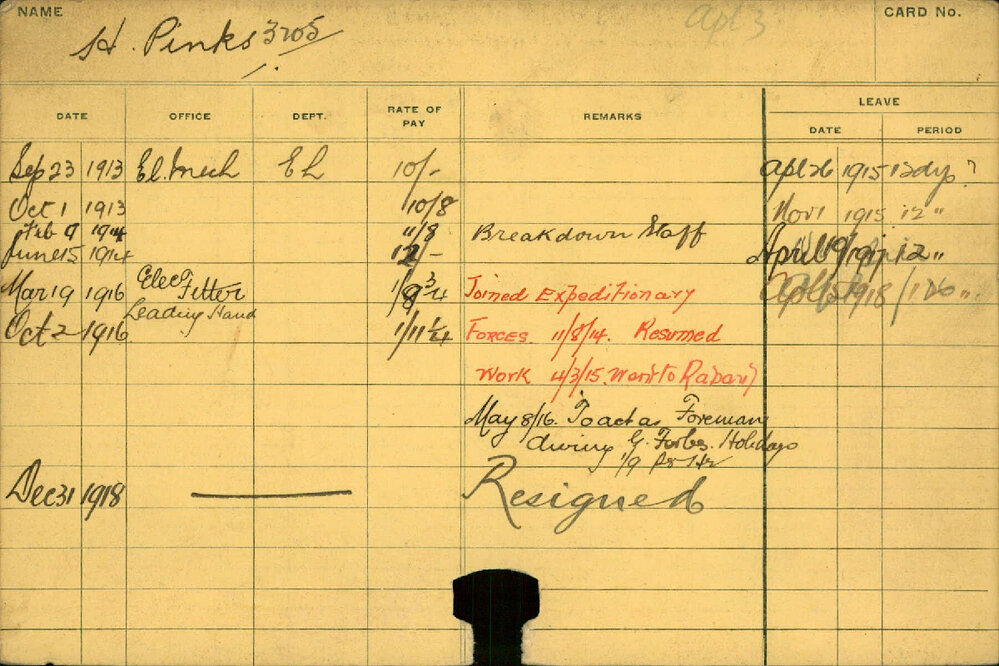 NAME CARD No.
H. Pinks 3205 Apl 3
LEAVE
DATE OFFICE DEPT. RATE OF PAY REMARKS DATE PERIOD
Sep 23 1913 El. Mech EL 10/- Apl 26 1915 12dys ?
Oct 1 1913 10/8 Nov 1 1915 12 "
Feb 9 1914 11/8 Breakdown Staff
June 15 1914 12/- April 19 1917 12 "
Mar 19 1916 Elec Fitter 1/8 3/4 Joined Expeditionary 1918
Leading Hand
Oct 2 1916 1/11 1/4 Forces. 11/8/14. Resumed
Work 4/3/15. Went to Rabaul
May 8/16. To act as Foreman
during G. Forbes. Holidays
1/9 per Hr
Dec 31 1918 Resigned